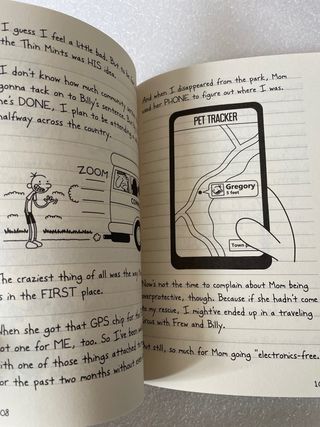 I guess I feel a little bad. But to be
the Thin Mints was HIS idea.
I don't know how much community
gonna tack on to Billy's sentence. But
he's DONE, I plan to be attending
halfway across the country.
ZOOM
The craziest thing of all was the way
s in the FIRST place.
When she got that GPS chip for
ot one for ME, too. So I've been
with one of those things attached to
or the past two months without even
08
And when I disappeared from the park, Mom
used her PHONE to figure out where I was.
PET TRACKER
Gregory
5 feet
Town
Now's not the time to complain about Mom being
overprotective, though. Because if she hadn't come
to my rescue, I might've ended up in a traveling
circus with Frew and Billy.
But still, so much for Mom going "electronics-free.
10